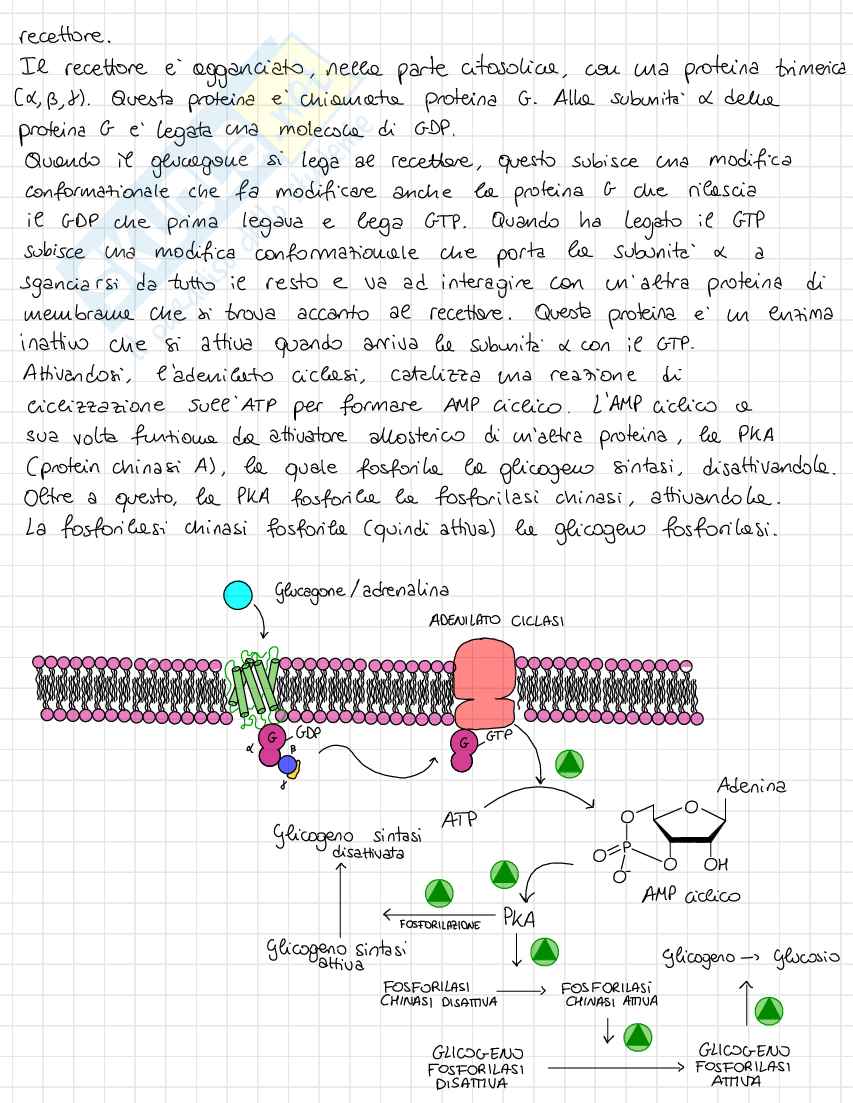 recettore.
Il recettore è agganciato, nella parte citosolica, con una proteina trimerica
(α, β, γ). Questa proteina è chiamata proteina G. Alla subunità α della
proteina G è legata una molecola di GDP.
Quando il glucagone si lega al recettore, questo subisce una modifica
conformazionale che fa modificare anche la proteina G che rilascia
il GDP che prima legava e lega GTP. Quando ha legato il GTP
subisce una modifica conformazionale che porta la subunità α a
sganciarsi da tutto il resto e va ad interagire con un'altra proteina di
membrana che si trova accanto al recettore. Questa proteina è un enzima
inattivo che si attiva quando arriva la subunità α con il GTP.
Attivandosi, l'adenilato ciclasi, catalizza una reazione di
ciclizzazione sull'ATP per formare AMP ciclico. L'AMP ciclico a
sua volta funziona da attivatore allosterico di un'altra proteina, la PKA
(protein chinasi A), la quale fosforila la glicogeno sintasi, disattivandola.
Oltre a questo, la PKA fosforila la fosforilasi chinasi, attivandola.
La fosforilasi chinasi fosforila (quindi attiva) la glicogeno fosforilasi.
Glucagone/adrenalina
ADENILATO CICLASI
G
GDP
α
β
γ
G
GTP
ATP
Adenina
O
O
P
O
O
O⁻
OH
AMP ciclico
Glicogeno sintasi
disattivata
PKA
FOSFORILAZIONE
Glicogeno sintasi
attiva
Glicogeno → Glucosio
FOSFORILASI
CHINASI DISATTIVA
FOSFORILASI
CHINASI ATTIVA
GLICOGENO
FOSFORILASI
DISATTIVA
GLICOGENO
FOSFORILASI
ATTIVA
SKUOLA.net
il paradiso dello studente